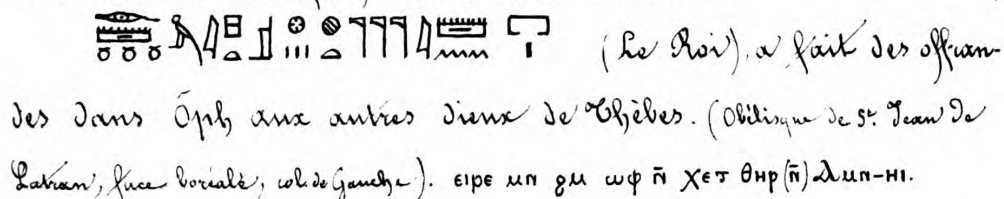 (Le Roi), a fait des offran-
des dans Ōph aux autres dieux de Thèbes. (Obélisque de St. Jean de
Latran, face boréale, col. de Gauche). ⲉⲓⲣⲉ ⲙⲛ ϩⲙ ⲱⲫ ⲛ̄ ⲭⲉⲧ ⲑⲏⲣ(ⲛ̄) ⲁⲙⲛ-ⲏⲓ.